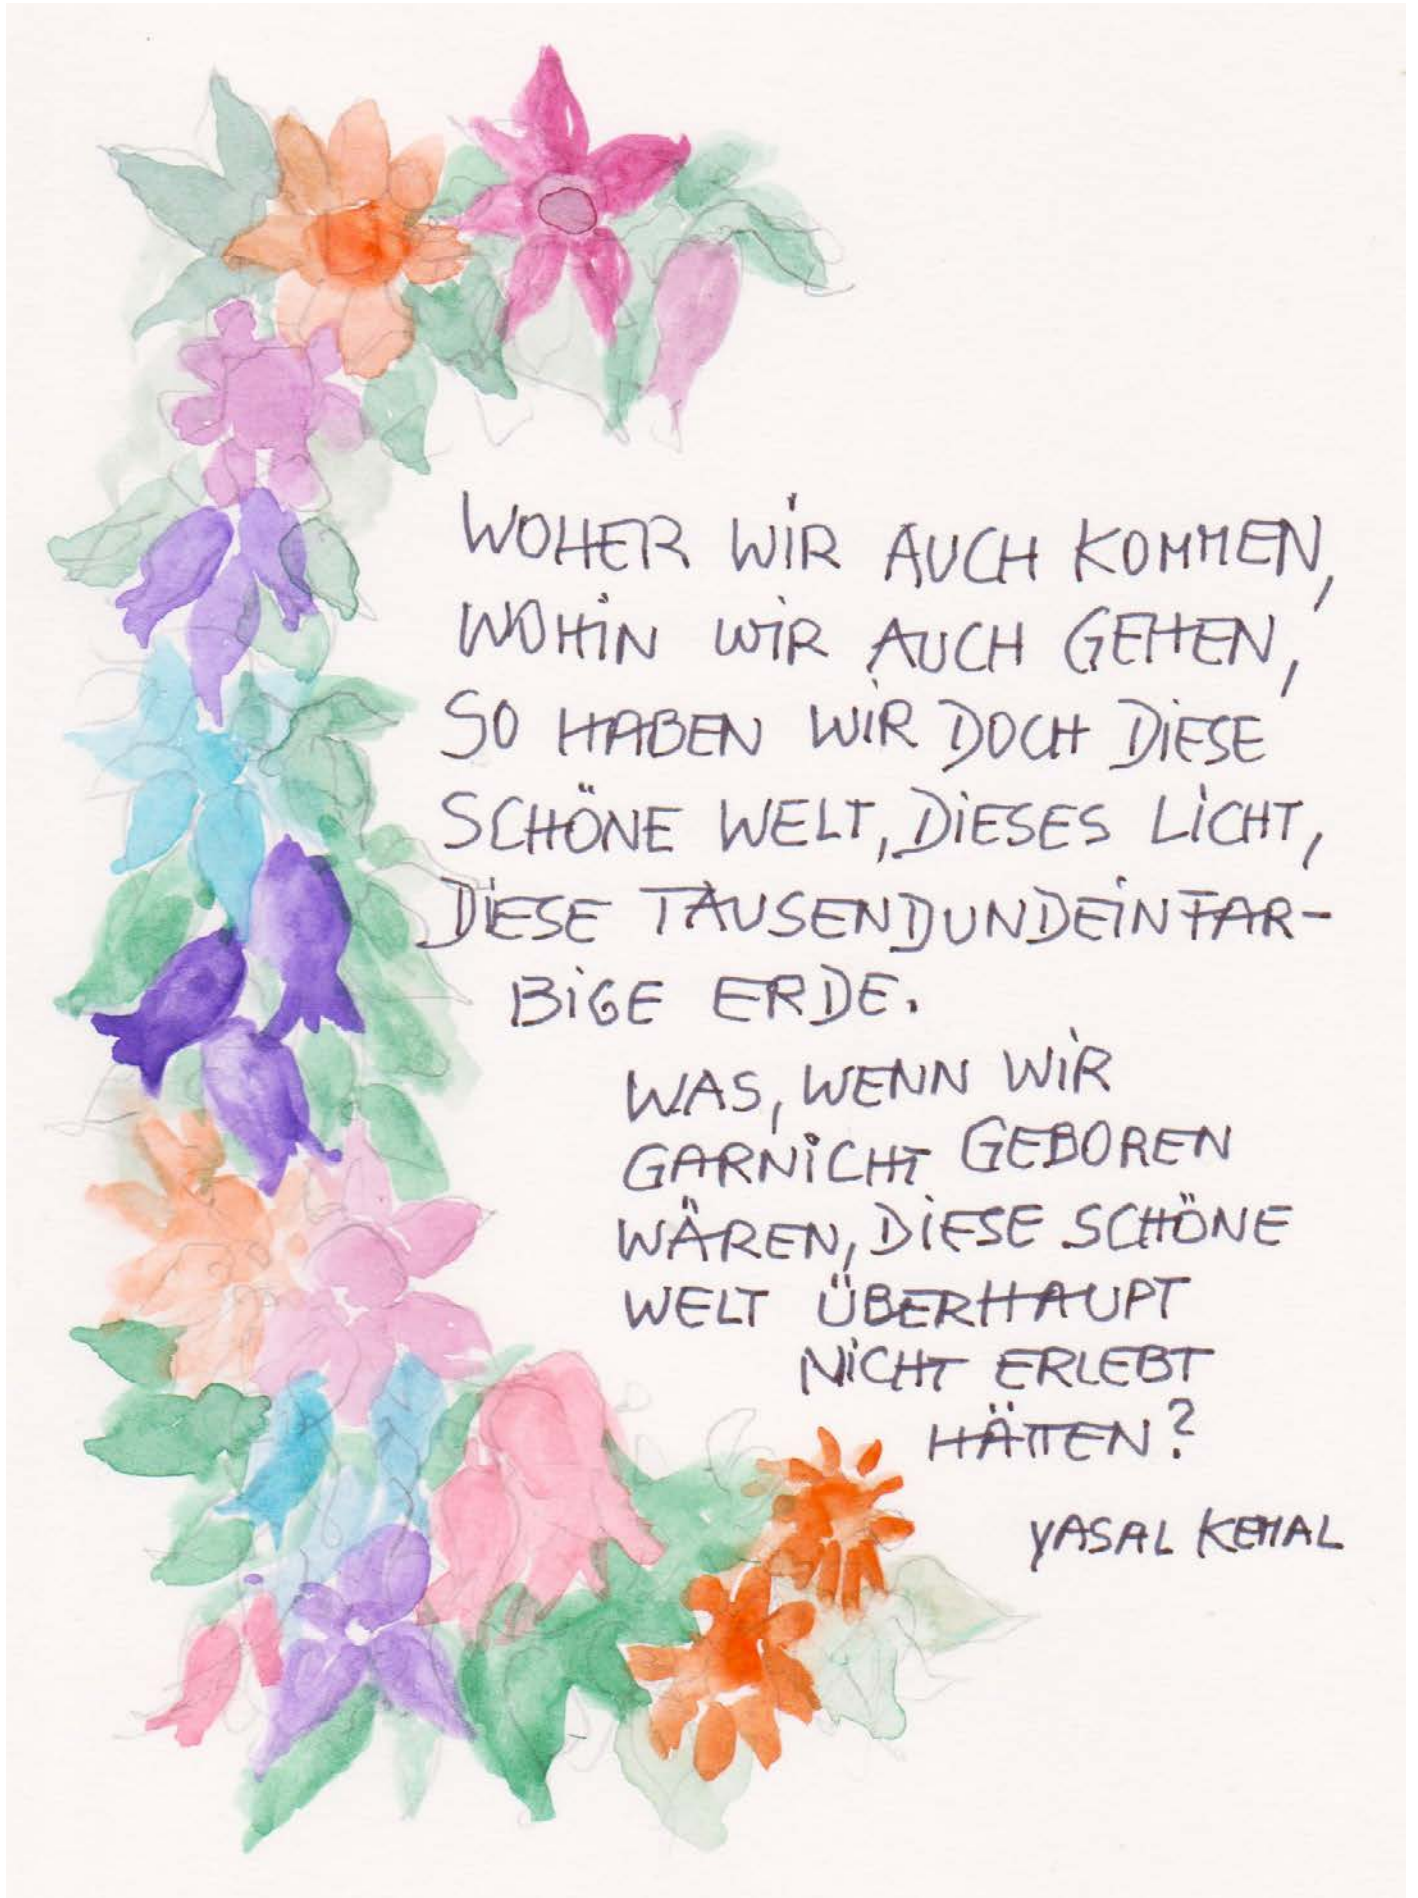 WOHER WiR AUCH KOMMEN,
WOHiN WiR AUCH GEHEN,
SO HABEN WiR DOCH DiESE
SCHÖNE WELT, DiESES LiCHT,
DiESE TAUSENDUNDEiNFAR-
BiGE ERDE.
WAS, WENN WiR
GARNiCHT GEBOREN
WÄREN, DiESE SCHÖNE
WELT ÜBERHAUPT
NiCHT ERLEBT
HÄTTEN?
YASAL KEMAL